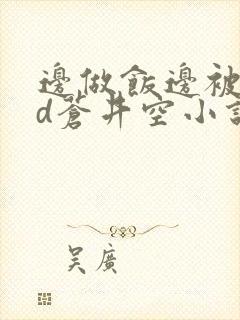 邊做飯邊被
d蒼井空小說
吴廣